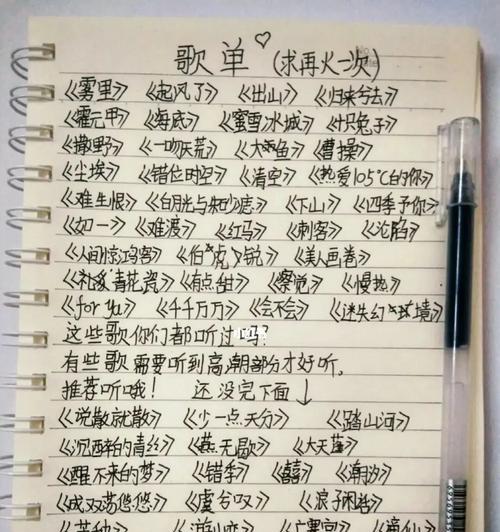 歌单♡(求再火一次)
《雾里》《起风了》《出山》《归来兮去》
《霍元甲》《海底》《蜜雪冰城》《十只兔子》
《撒野》《一吻天荒》《大鱼》《曹操》
《尘埃》《错位时空》《清空》《热爱105℃的你》
《难生恨》《白月光与朱砂痣》《下山》《四季予你》
《如一》《难渡》《红马》《刺客》《沦陷》
《人间惊鸿客》《伯虎说》《美人画卷》
《青花瓷》《有点甜》《察觉》《慢热》
《for ya》《千千万万》《会不会》《迷失幻境》
这些歌你们都听过吗?
有些歌需要听到高潮部分才好听。
推荐听哦! 还没完下面↓
《说散就散》《少一点天分》《踏山河》
《沉西锌的青丝》《燕无歇》《大天蓬》
《醒不来的梦》《错季》《囍》《潮汐》
《成双荡悠悠》《虞兮叹》《浪子闲话》
《芒种》《广寒宫》《谪仙》